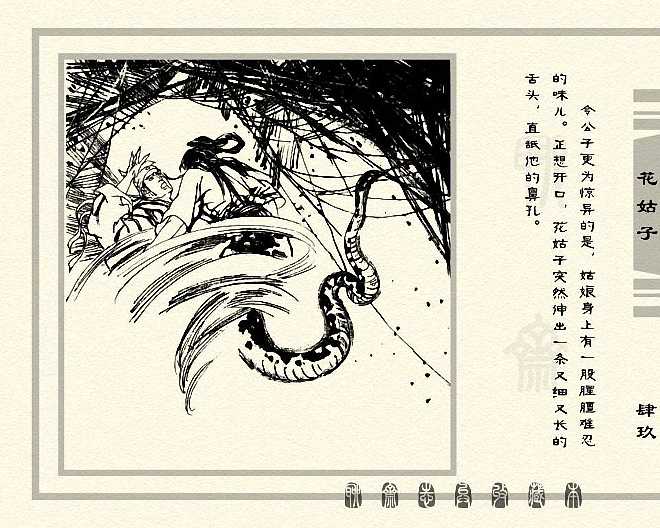 花姑子
肆玖
令公子更为惊异的是，姑娘身上有一股腥膻难忍
的味儿。正想开口，花姑子突然伸出一条又细又长的
舌头，直舐他的鼻孔。
聊斋志异收藏本